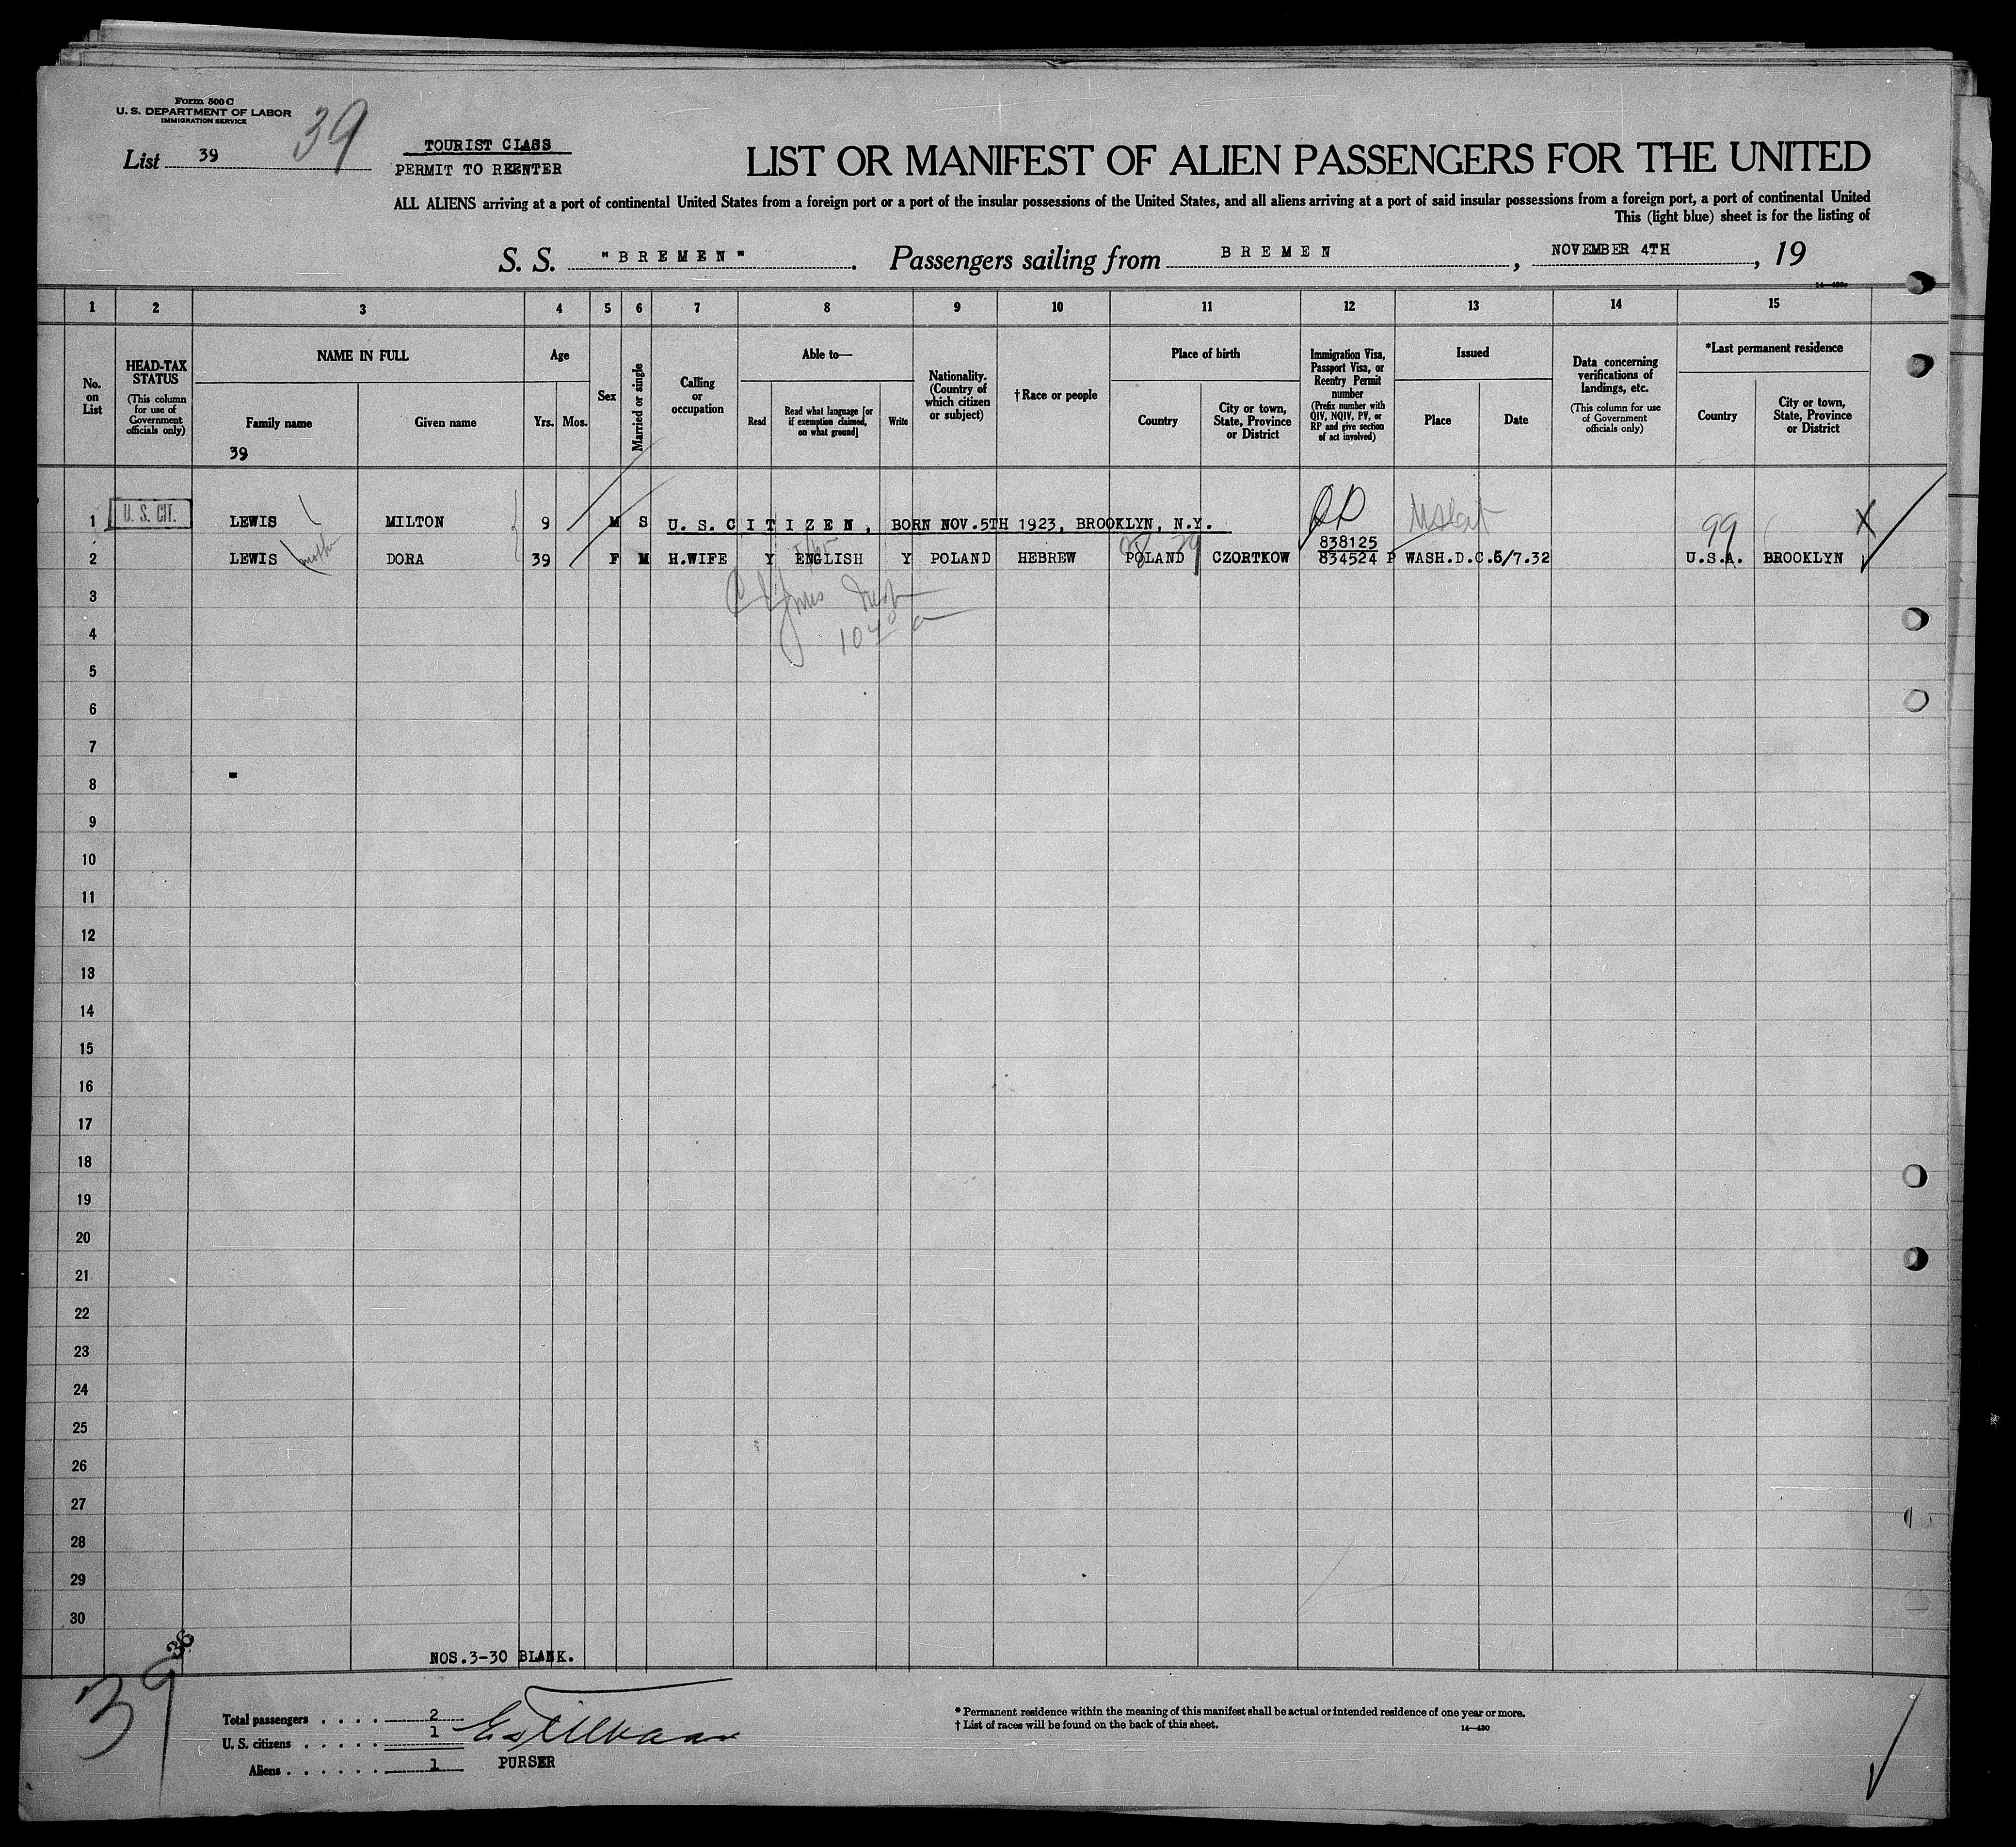 Form 500 C
U. S. DEPARTMENT OF LABOR
IMMIGRATION SERVICE
39
List 39
TOURIST CLASS
PERMIT TO REENTER
LIST OR MANIFEST OF ALIEN PASSENGERS FOR THE UNITED
ALL ALIENS arriving at a port of continental United States from a foreign port or a port of the insular possessions of the United States, and all aliens arriving at a port of said insular possessions from a foreign port, a port of continental United
This (light blue) sheet is for the listing of
S. S. "BREMEN". Passengers sailing from BREMEN, NOVEMBER 4TH, 19
14—430
1 2 3 4 5 6 7 8 9 10 11 12 13 14 15
No. on List
HEAD-TAX STATUS (This column for use of Government officials only)
NAME IN FULL
Family name
39
Given name
Age
Yrs. Mos.
Sex
Married or single
Calling or occupation
Able to—
Read
Read what language [or if exemption claimed, on what ground]
Write
Nationality. (Country of which citizen or subject)
† Race or people
Place of birth
Country
City or town, State, Province or District
Immigration Visa, Passport Visa, or Reentry Permit number (Prefix number with QIV, NQIV, PV, or RP and give section of act involved)
Issued
Place
Date
Data concerning verifications of landings, etc. (This column for use of Government officials only)
*Last permanent residence
Country
City or town, State, Province or District
1 U. S. CIT. LEWIS MILTON 9 M S U. S. CITIZEN, BORN NOV.5TH 1923, BROOKLYN, N.Y. 99 X
838125
2 LEWIS mother DORA 39 F M H.WIFE Y ENGLISH Y POLAND HEBREW POLAND CZORTKOW 834524 P WASH.D.C. 5/7.32 U.S.A. BROOKLYN
3
4
5
6
7
8
9
10
11
12
13
14
15
16
17
18
19
20
21
22
23
24
25
26
27
28
29
30
36
NOS.3-30 BLANK.
39
Total passengers . . . . 2
U. S. citizens . . . . . 1
Aliens . . . . . . 1
PURSER
* Permanent residence within the meaning of this manifest shall be actual or intended residence of one year or more.
† List of races will be found on the back of this sheet.
14—430